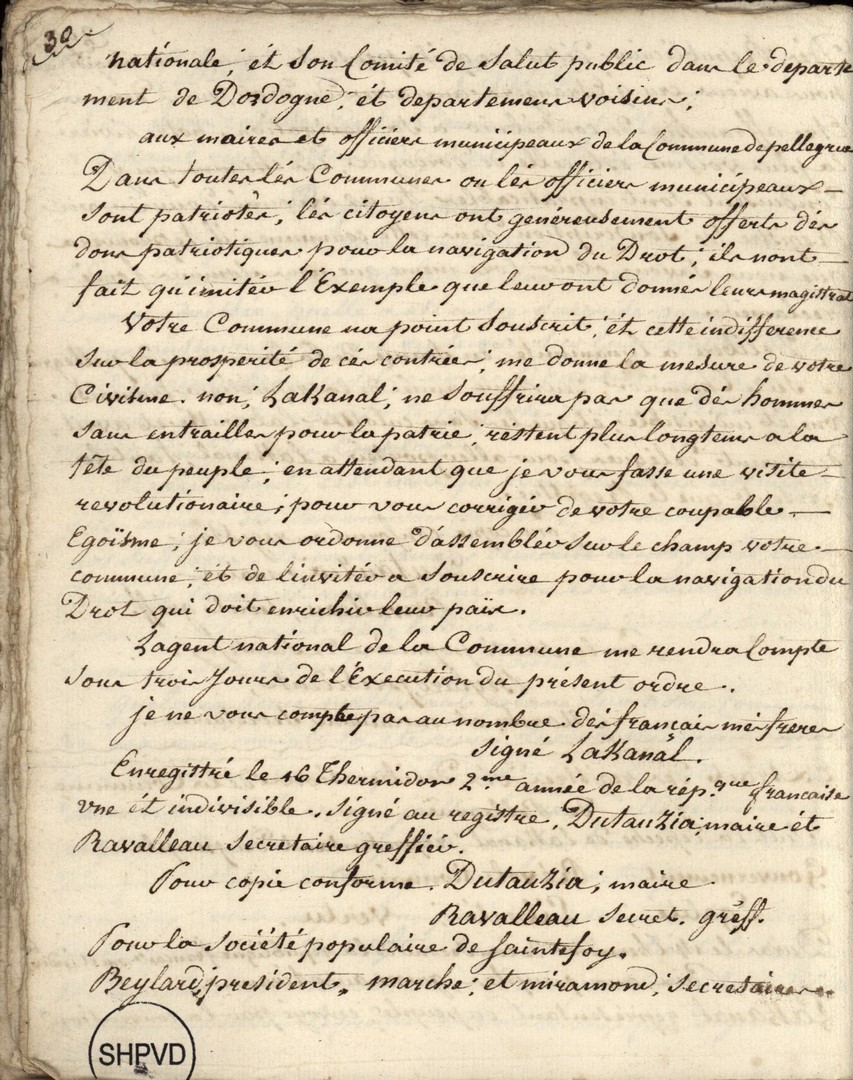 30
nationale; ét son Comité de Salut public dans le departe
ment de Dordogne; ét departemens voisins;
aux maires et officiers municipeaux de la Commune de pellegrue
Dans toutes lés Communes ou lés officiers municipeaux
sont patriotes; lés citoyens ont généreusement offerts dés
dons patriotiques pour la navigation du Drot; ils nont
fait qu'imitér l'Exemple que leur ont donnés leurs magistrat
Votre Commune na point souscrit; ét cette indifference
sur la prosperité de cés contrées; me donne la mesure de votre
Civisme. non; Lakanal; ne souffrira pas que dés hommes
sans entrailles pour la patrie; réstent plus longtems a la
téte du peuple; en attendant que je vous fasse une visite
revolutionaire; pour vous corrigér de votre coupable
Egoïsme; je vous ordonne d'assemblér sur le champ votre
commune; ét de linvitér a souscrire pour la navigation du
Drot qui doit enrichir leur païs.
Lagent national de la Commune me rendra Compte
sous trois Jours de l'Execution du présent ordre.
je ne vous compte pas au nombre dés francais més freres
signé Lakanal.
Enregistré le 16 Thermidor 2.me année de la rép.que francaise
vne ét indivisible. signé au registre. Dutauzia; maire ét
Ravalleau secretaire greffiér.
Pour copie conforme. Dutauzia; maire
Ravalleau secret. gréff.
Pour la société populaire de Saintefoy.
Beylard, président, marche; et miramond; secretaires.
SHPVD